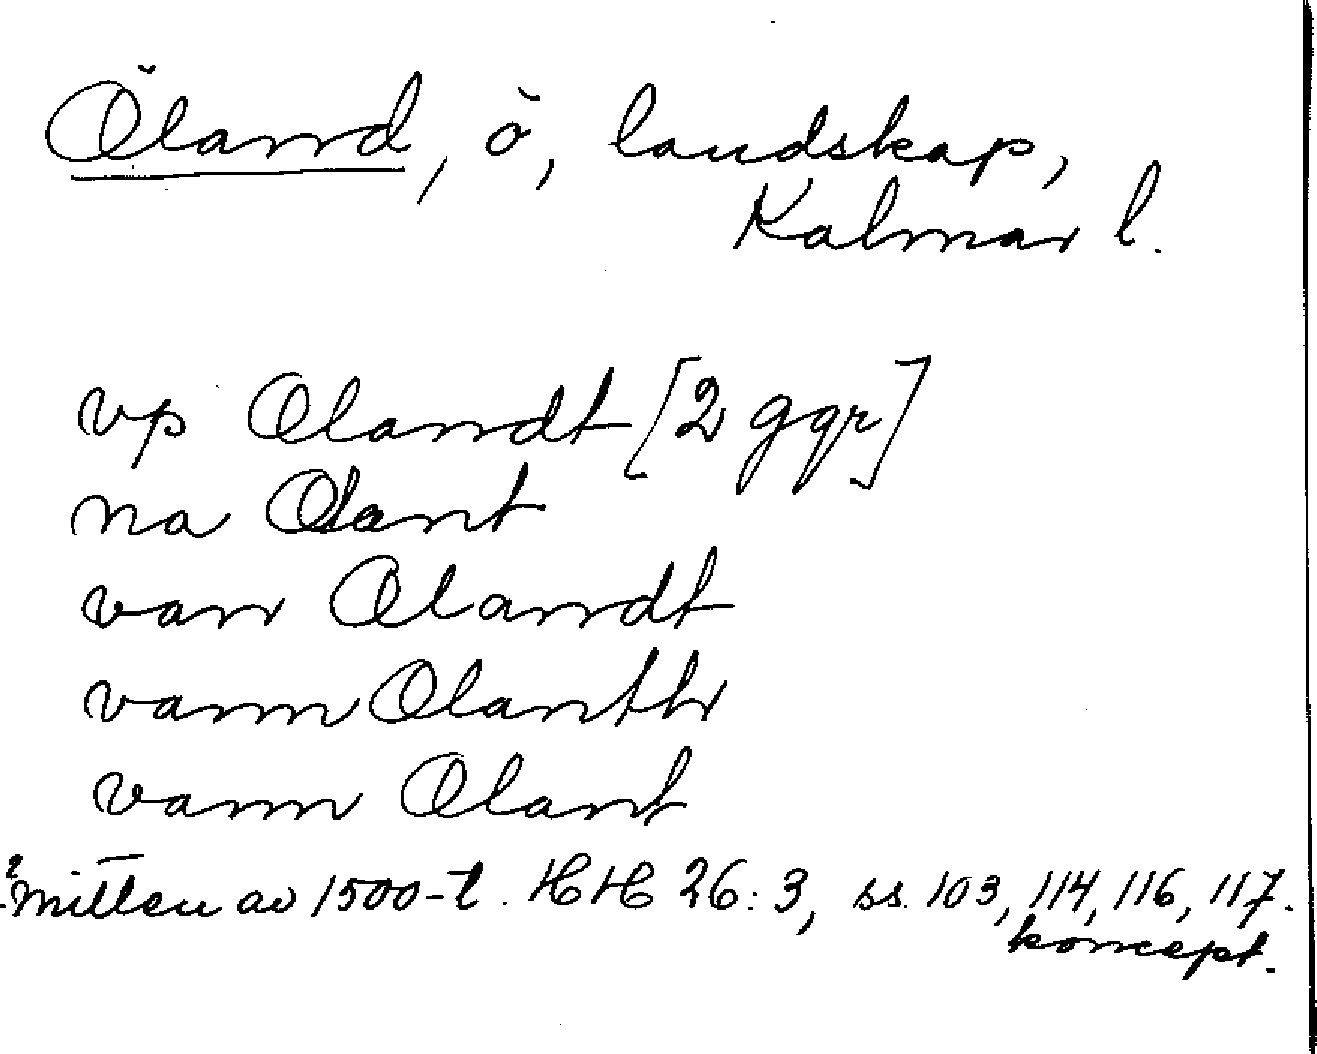 Öland, ö, landskap,
Kalmar l.
vp Olandt [2 ggr]
na Olant
van Olandt
vann Olanth
vann Olant
?mitten av 1500-t. HH 26:3, ss. 103, 114, 116, 117.
koncept.